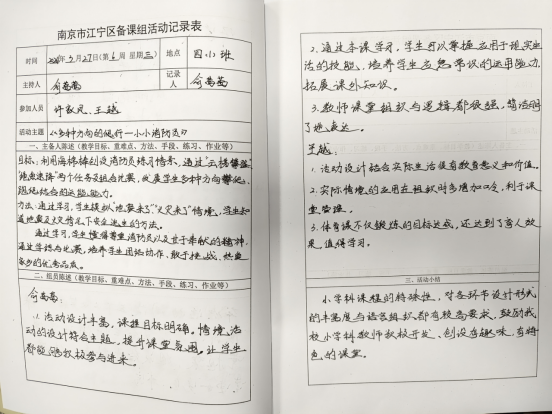 南京市江宁区备课组活动记录表
时间
2020年5月27日(第6周 星期三)
地点
四(1)班
主持人
俞茜茜
记录人
俞茜茜
参加人员
许家凤、王越
活动主题
《多种方向的爬行—小小消防员》
一、主备人陈述(教学目标、重难点、方法、手段、练习、作业等)
目标:利用海绵棒创设消防员练习情景,通过
两个任务及组合比赛,发展学生多种方向攀爬、
能力。
方法:通过学习,学生模拟“地震来了”“火灾来了”情境,学生知
道地震及火灾情况下安全逃生的方法。
通过学习,学生懂得尊重消防员以及甘于奉献的精神,
通过学练与比赛,培养学生团结协作、敢于挑战、热爱
家乡的优秀品质。
二、组员陈述(教学目标、重难点、方法、手段、练习、作业等)
俞茜茜:
1.活动设计丰富,课程目标明确。情境活
动的设计符合主题,提升课堂氛围。让学生
都能够积极参与进来。
2.通过本课学习,学生可以掌握应用于现实生
活的技能,培养学生应急常识的运用能力,
拓展课外知识。
3.教师课堂组织与逻辑都很强,简洁明
了地表达。
王越:
1.活动设计结合实际生活很有教育意义和价值。
2.实际情境的应用在组织时多增加口令,利于课
堂管理。
3.体育课不仅锻炼的目标达成,还达到了育人效
果,值得学习。
三、活动小结
小学科课程的特殊性,对各环节设计形式
的丰富度与语言组织都有较高要求,鼓励我
校小学科教师积极开发、创设有趣味、有特
色的课堂。